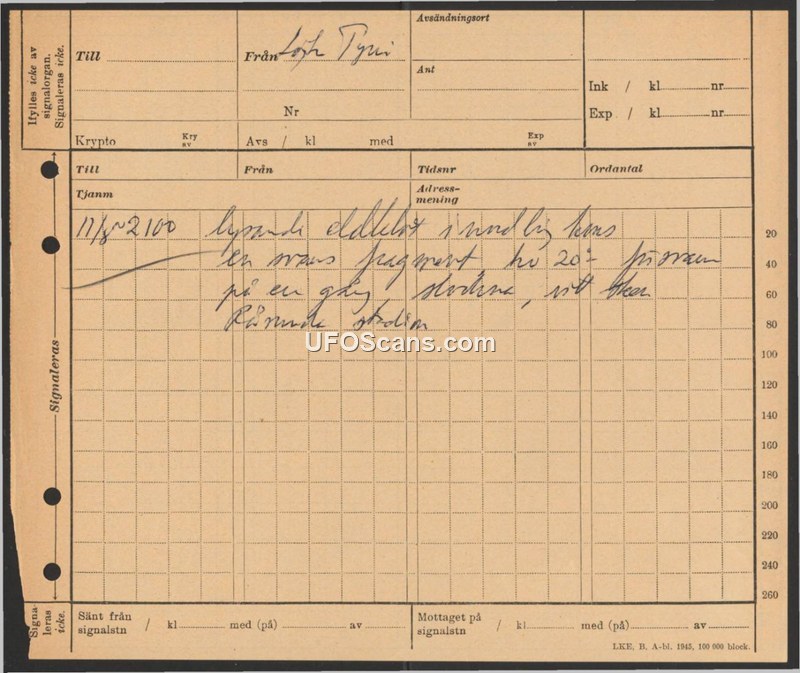 Ifylles icke av
signalorgan.
Signaleras icke.
Till
Från
Avsändningsort
Ant
Ink / kl nr
Exp / kl nr
Nr
Krypto Kry av
Avs / kl med Exp av
Till Från Tidsnr Ordantal
Tjanm Adress-
mening
11/8 2100 lysande i nordlig kurs
en svans fragment 20°
på en gång slockna, vitt sken
Råsunda stadion
UFOScans.com
20
40
60
80
100
120
140
160
180
200
220
240
260
Signaleras
Signa-
leras
icke.
Sänt från
signalstn / kl med (på) av
Mottaget på
signalstn / kl med (på) av
LKE, B. A-bl. 1943, 100 000 block.